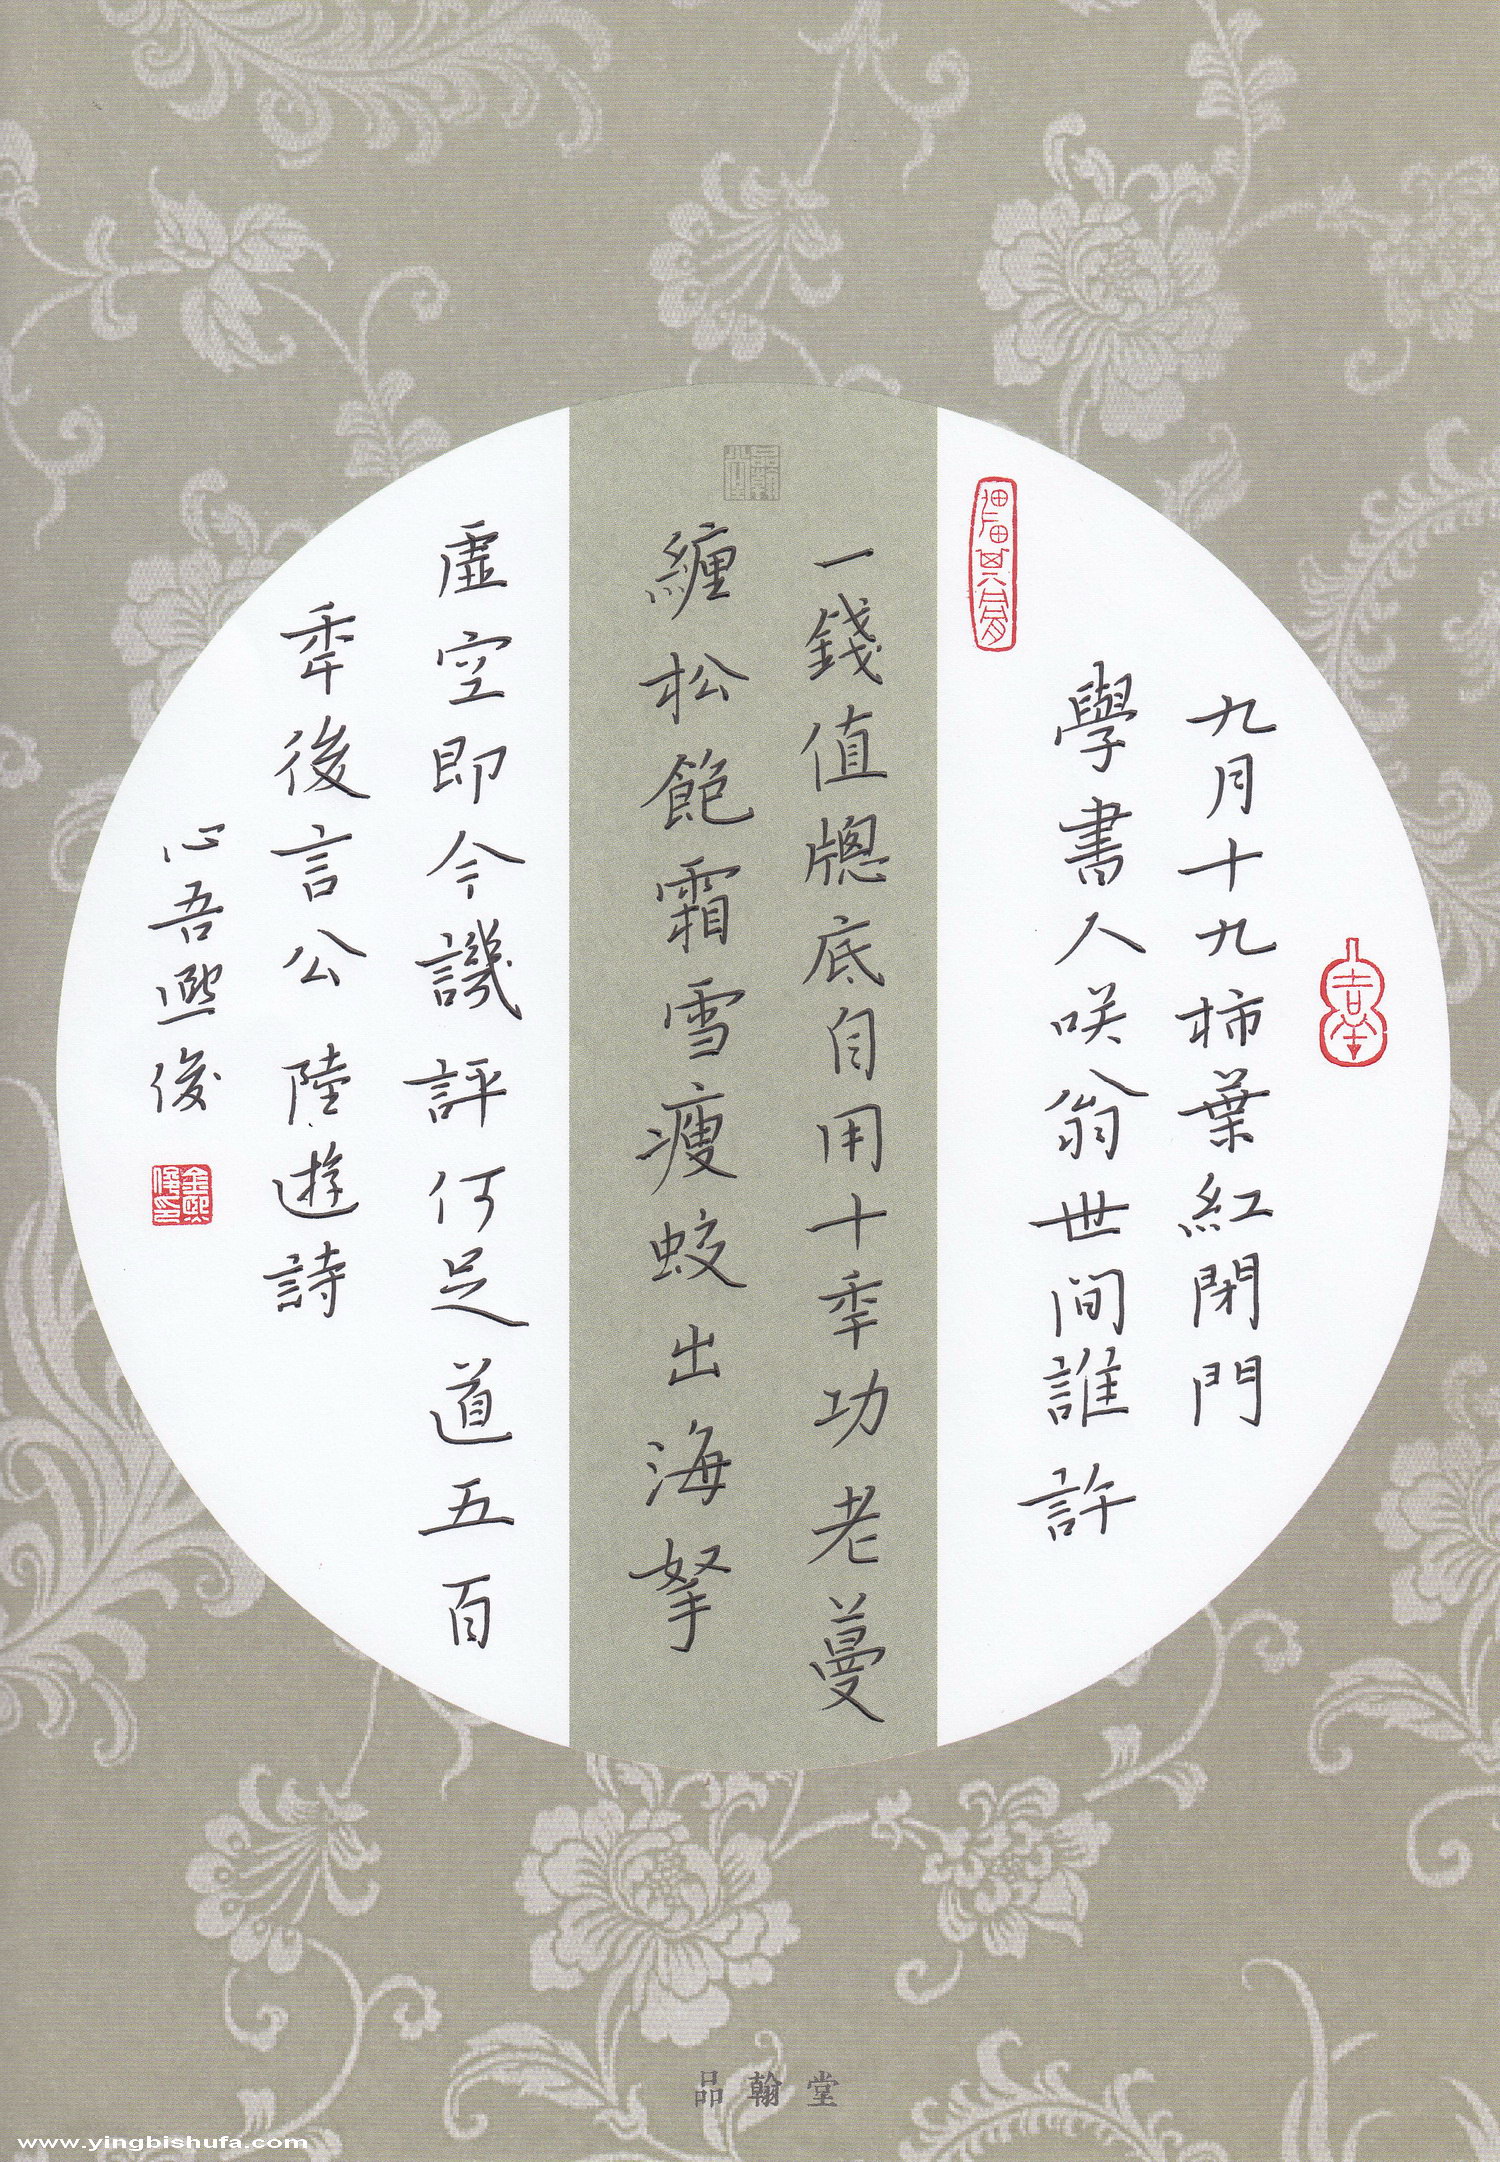 九月十九柿葉紅閉門
學書人咲翁世間誰許
一錢值牕底自用十季功老蔓
纏松飽霜雪瘦蛟出海拏
虛空即今譏評何足道五百
年後言公陸遊詩
心吾熙俊
品翰堂
www.yingbishufa.com